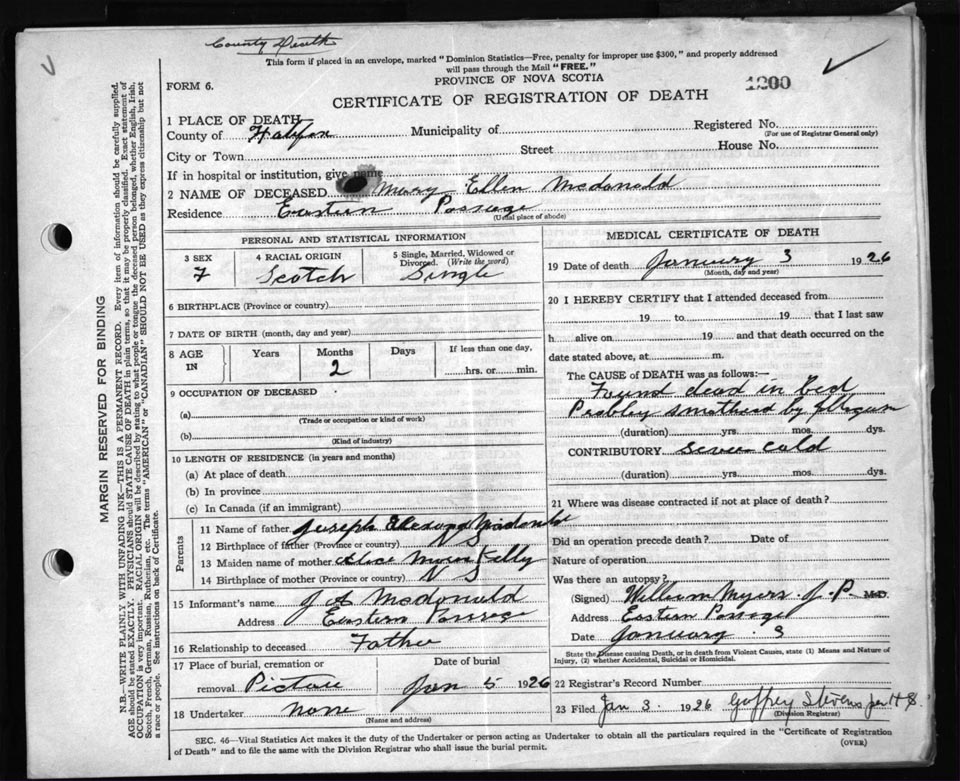 County Death
This form if placed in an envelope, marked "Dominion Statistics—Free, penalty for improper use $300," and properly addressed
will pass through the Mail "FREE."
PROVINCE OF NOVA SCOTIA
FORM 6.
1200
CERTIFICATE OF REGISTRATION OF DEATH
MARGIN RESERVED FOR BINDING
N.B.—WRITE PLAINLY WITH UNFADING INK—THIS IS A PERMANENT RECORD. Every item of information should be carefully supplied.
AGE should be stated EXACTLY. PHYSICIANS should STATE CAUSE OF DEATH in plain terms, so that it may be properly classified. Exact statement of
OCCUPATION is very important. RACIAL ORIGIN will be described by stating to what people or tongue the deceased person belonged, whether English, Irish,
Scotch, French, German, Russian, Ruthenian, etc. The terms "AMERICAN" or "CANADIAN" SHOULD NOT BE USED as they express citizenship but not
a race or people. See instructions on back of Certificate.
1 PLACE OF DEATH
County of Halifax Municipality of Registered No.
(For use of Registrar General only)
City or Town Street House No.
If in hospital or institution, give name
2 NAME OF DECEASED Mary Ellen Mcdonald
Residence Eastern Passage
(Usual place of abode)
PERSONAL AND STATISTICAL INFORMATION
3 SEX 4 RACIAL ORIGIN 5 Single, Married, Widowed or
Divorced. (Write the word)
F Scotch Single
6 BIRTHPLACE (Province or country)
7 DATE OF BIRTH (month, day and year)
8 AGE IN Years Months Days If less than one day,
2 hrs. or min.
9 OCCUPATION OF DECEASED
(a)
(Trade or occupation or kind of work)
(b)
(Kind of industry)
10 LENGTH OF RESIDENCE (in years and months)
(a) At place of death
(b) In province
(c) In Canada (if an immigrant)
Parents
11 Name of father Joseph
12 Birthplace of father (Province or country) N S
13 Maiden name of mother Alice Kelly
14 Birthplace of mother (Province or country) N S
15 Informant's name J A Mcdonald
Address Eastern Passage
16 Relationship to deceased Father
17 Place of burial, cremation or Date of burial
removal Pictou Jan 5 1926
18 Undertaker none
(Name and address)
MEDICAL CERTIFICATE OF DEATH
19 Date of death January 3 1926
(Month, day and year)
20 I HEREBY CERTIFY that I attended deceased from
19 to 19 that I last saw
h alive on 19 and that death occurred on the
date stated above, at m.
The CAUSE of DEATH was as follows:—
Found dead in bed
smothered by
(duration) yrs. mos. dys.
CONTRIBUTORY cold
(duration) yrs. mos. dys.
21 Where was disease contracted if not at place of death?
Did an operation precede death? Date of
Nature of operation
Was there an autopsy?
(Signed) William Myers J.P. M.D.
Address Eastern Passage
Date January 3
State the Disease causing Death, or in death from Violent Causes, state (1) Means and Nature of
Injury, (2) whether Accidental, Suicidal or Homicidal.
22 Registrar's Record Number
23 Filed Jan 3 1926 Goffrey Stevens per H S.
(Division Registrar)
SEC. 46—Vital Statistics Act makes it the duty of the Undertaker or person acting as Undertaker to obtain all the particulars required in the "Certificate of Registration
of Death" and to file the same with the Division Registrar who shall issue the burial permit.
(OVER)